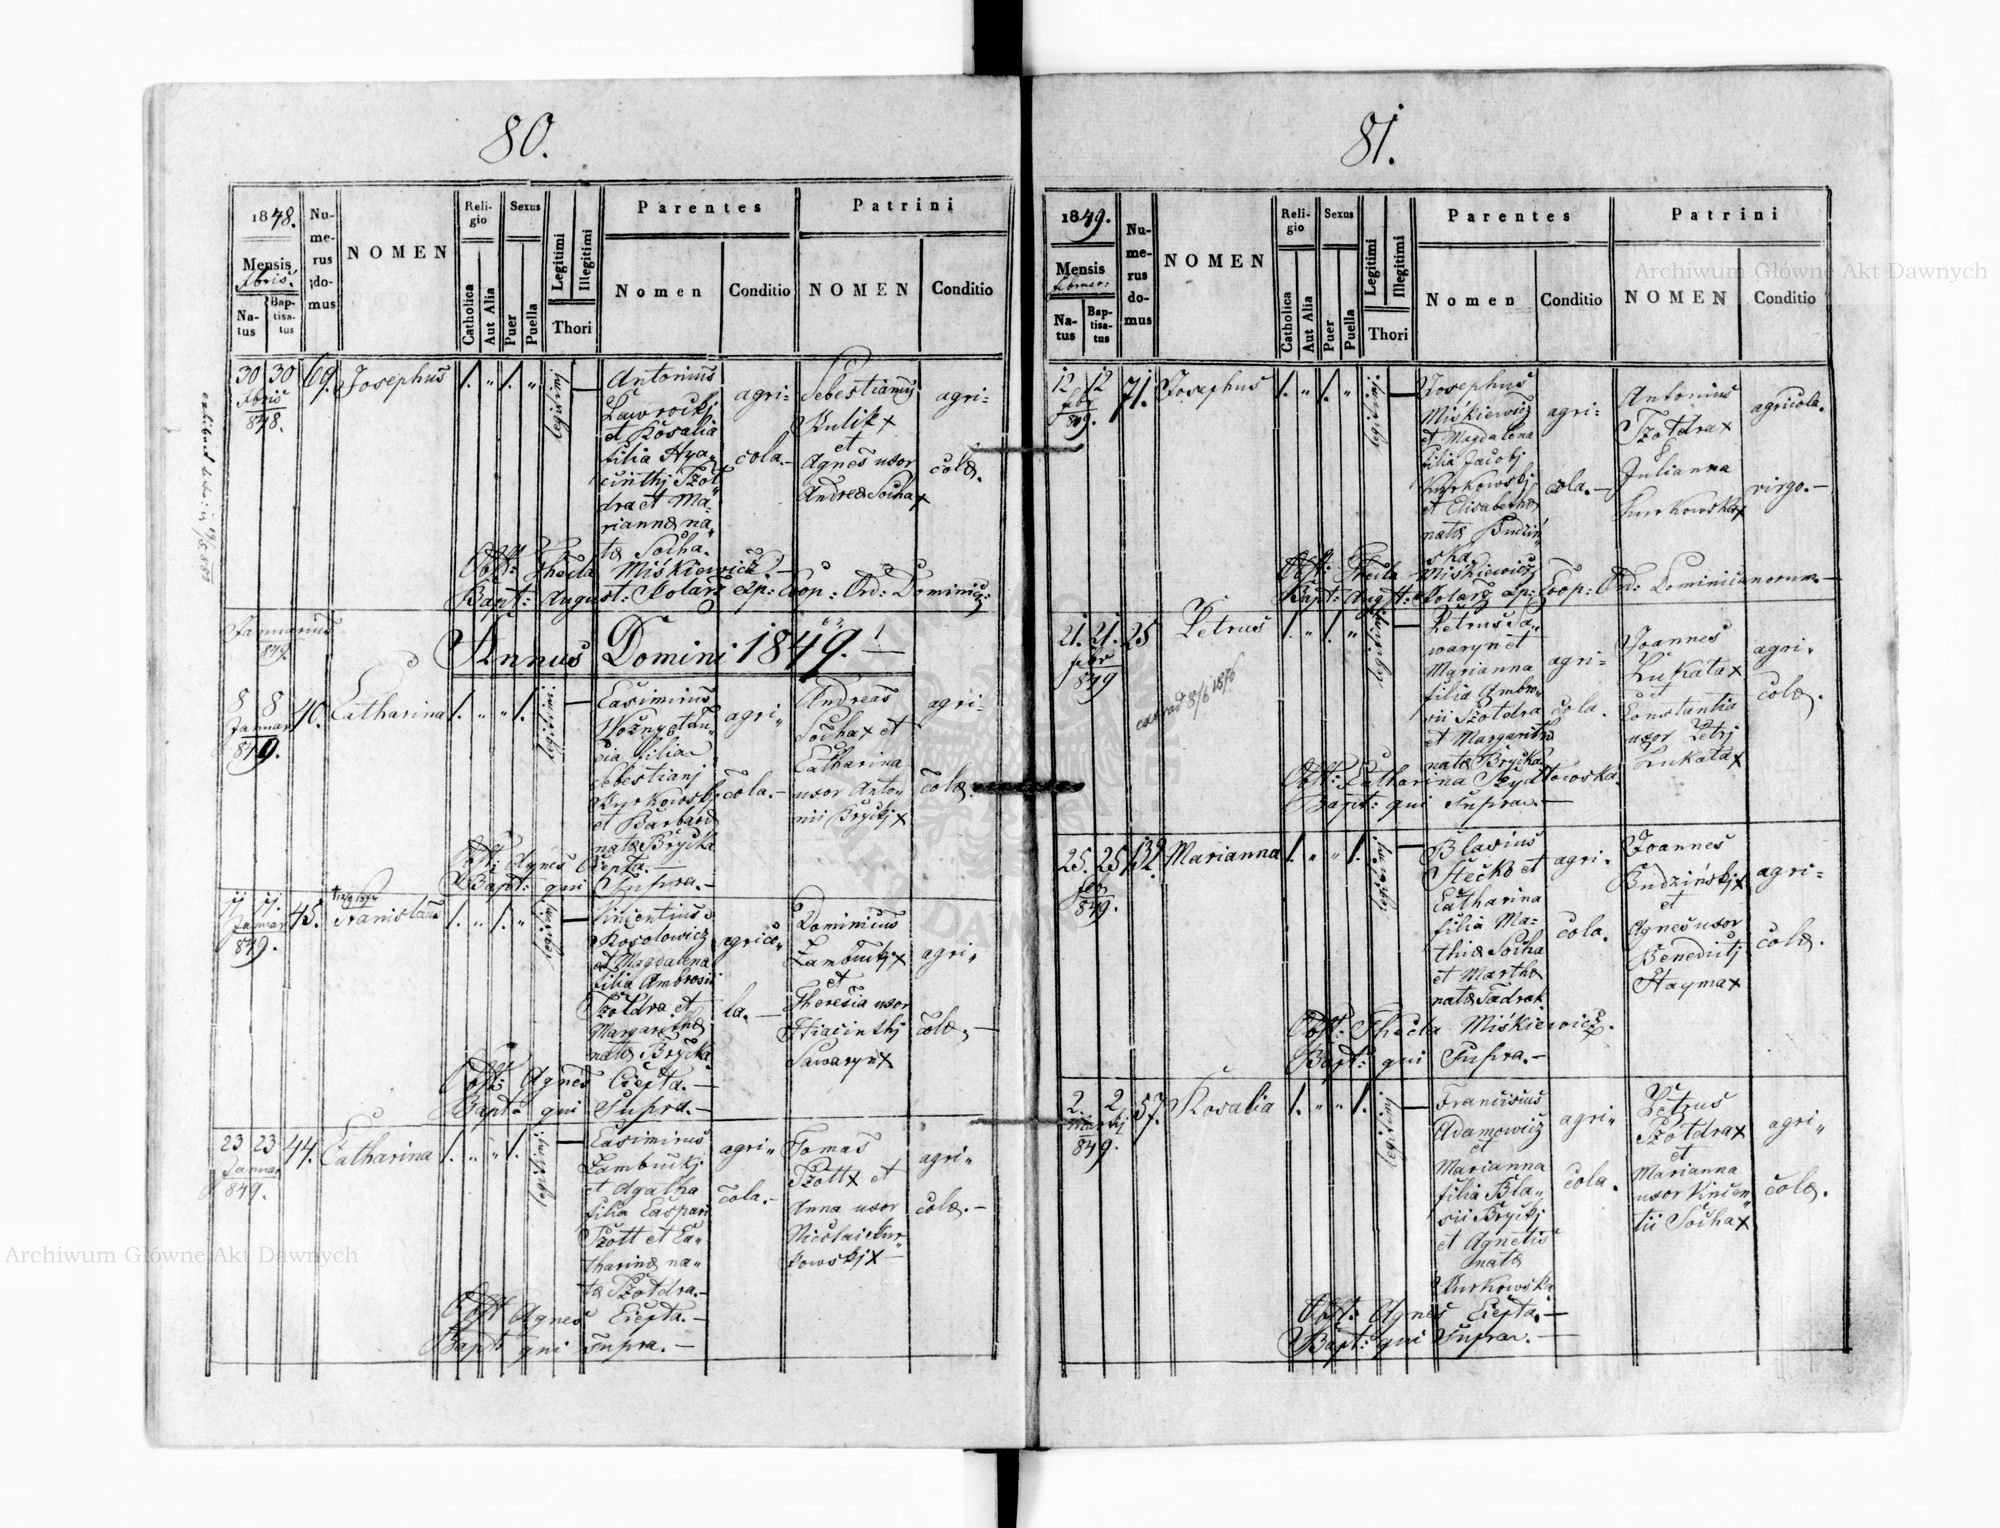 80.
1848.
Mensis
Na-
tus
Bap-
tisa-
tus
Nu-
me-
rus
do-
mus
NOMEN
Reli-
gio
Catholica
Aut Alia
Sexus
Puer
Puella
Legitimi
Illegitimi
Thori
Parentes
Nomen
Conditio
Patrini
NOMEN
Conditio
30 30
848.
69.
Josephus
1. " 1. "
Antonius
et Rosalia
filia Hya-
cinthj Szoł
dra et Ma-
riannæ na-
tæ Socha.
agri-
cola.-
Sebestianus
Kulik x
et
Agnes uxor
Andreæ Socha x
agri-
colæ.
Obst: Thecla Miśkiewicz.-
Bapt: August: Kolarz Exp: Coop: Ord: Dominic:
Januarius
849.
Annus Domini 1849.
8 8
Januar
849.
40.
Catharina
1. " " 1.
Casimirus
Woźny et Lu-
cia filia
Sebestianj
Kurkowskj
et Barbaræ
natæ Bryćka
agri-
cola.-
Andreas
Socha x et
Catharina
uxor Anto-
nii Bryckj x
agri-
colæ.
Obst: Agnes Ciepta.
Bapt: qui Supra.-
11. 11.
Januar
849.
45.
Stanislaus
1. " 1. "
Vincentius
Kosolowicz
et Magdalena
filia Ambrosii
Szoldra et
Margarethæ
natæ Bryćka
agrico-
la.-
Dominicus
Zambuckj x
et
Theresia uxor
Hiacinthj
Sawaryn x
agri-
colæ.-
Obst: Agnes Ciepta.-
Bapt: qui Supra.-
23 23
Januar
849.
44.
Catharina
1. " " 1.
Casimirus
Zambuckj
et Agatha
filia Caspari
Szott et Ca-
tharinæ na-
tæ Szoldra.-
agri-
cola.-
Tomas
Szott x et
Anna uxor
Nicolai Kur-
kowskj x
agri-
colæ.-
Obst: Agnes Ciepta.-
Bapt: qui Supra.-
81.
1849.
Mensis
februar:
Na-
tus
Bap-
tisa-
tus
Nu-
me-
rus
do-
mus
NOMEN
Reli-
gio
Catholica
Aut Alia
Sexus
Puer
Puella
Legitimi
Illegitimi
Thori
Parentes
Nomen
Conditio
Patrini
NOMEN
Conditio
12 12
feb
849.
71.
Josephus
1. " 1. "
Josephus
Miśkiewicz
et Magdalena
filia Jacobj
Kurkowskj
et Elisabethæ
natæ Budziń
ska
agri-
cola.-
Antonius
Szołdra x
Julianna
Kurkowska x
agricola.
virgo.-
Obst: Thecla Miśkiewicz
Bapt: Augt: Kolarz Exp: Coop: Ord: Dominicanorum.-
21. 21.
febr
849
25
Petrus
1. " 1. "
Petrus Sa-
waryn et
Marianna
filia Ambro-
sii Szołdra
et Margarethæ
natæ Bryćka
agri-
cola.
Joannes
Łukata x
et
Constantia
uxor Petrj
Łukata x
agri-
colæ.
Bapt: qui Supra.-
25. 25
feb
849.
132.
Marianna
1. " " 1.
Blasius
Stećko et
Catharina
filia Ma-
thiæ Socha
et Marthæ
natæ Fadrak
agri-
cola.
Joannes
Budzińskj x
et
Agnes uxor
Benedictj
Hayma x
agri-
colæ.
Obst: Thecla Miśkiewicz.
Bapt: qui Supra.-
2. 2
Martij
849.
57.
Rosalia
1. " " 1.
Franciscus
Adamowicz
et
Marianna
filia Bla-
sii Bryćkj
et Agnetis
natæ
Kurkowska
agri-
cola.
Petrus
Szołdra x
et
Marianna
uxor Vincen-
tii Socha x
agri-
colæ.
Obst: Agnes Ciepta.-
Bapt: qui Supra.-
Archiwum Główne Akt Dawnych
Archiwum Główne Akt Dawnych